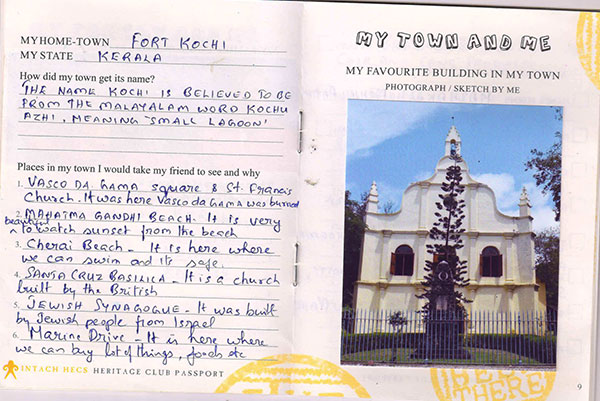 MY HOME-TOWN FORT KOCHI
MY STATE KERALA
How did my town get its name?
THE NAME KOCHI IS BELIEVED TO BE
FROM THE MALAYALAM WORD KOCHU
AZHI, MEANING 'SMALL LAGOON'
Places in my town I would take my friend to see and why
1. VASCO DA GAMA square & St. Francis
Church. It was here Vasco da GAMA was buried
2. MAHATMA GANDHI BEACH- It is very
beautiful to watch sunset from the beach
3. Cherai Beach - It is here where
we can swim and its safe.
4. SANTA CRUZ BASILICA - It is a church
built by the British
5. JEWISH SYNAGOGUE - It was built
by Jewish people from Israel
6. Marine Drive - It is here where
we can buy lot of things, foods etc
INTACH HECS HERITAGE CLUB PASSPORT
MY TOWN AND ME
MY FAVOURITE BUILDING IN MY TOWN
PHOTOGRAPH / SKETCH BY ME
BEEN
THERE
9